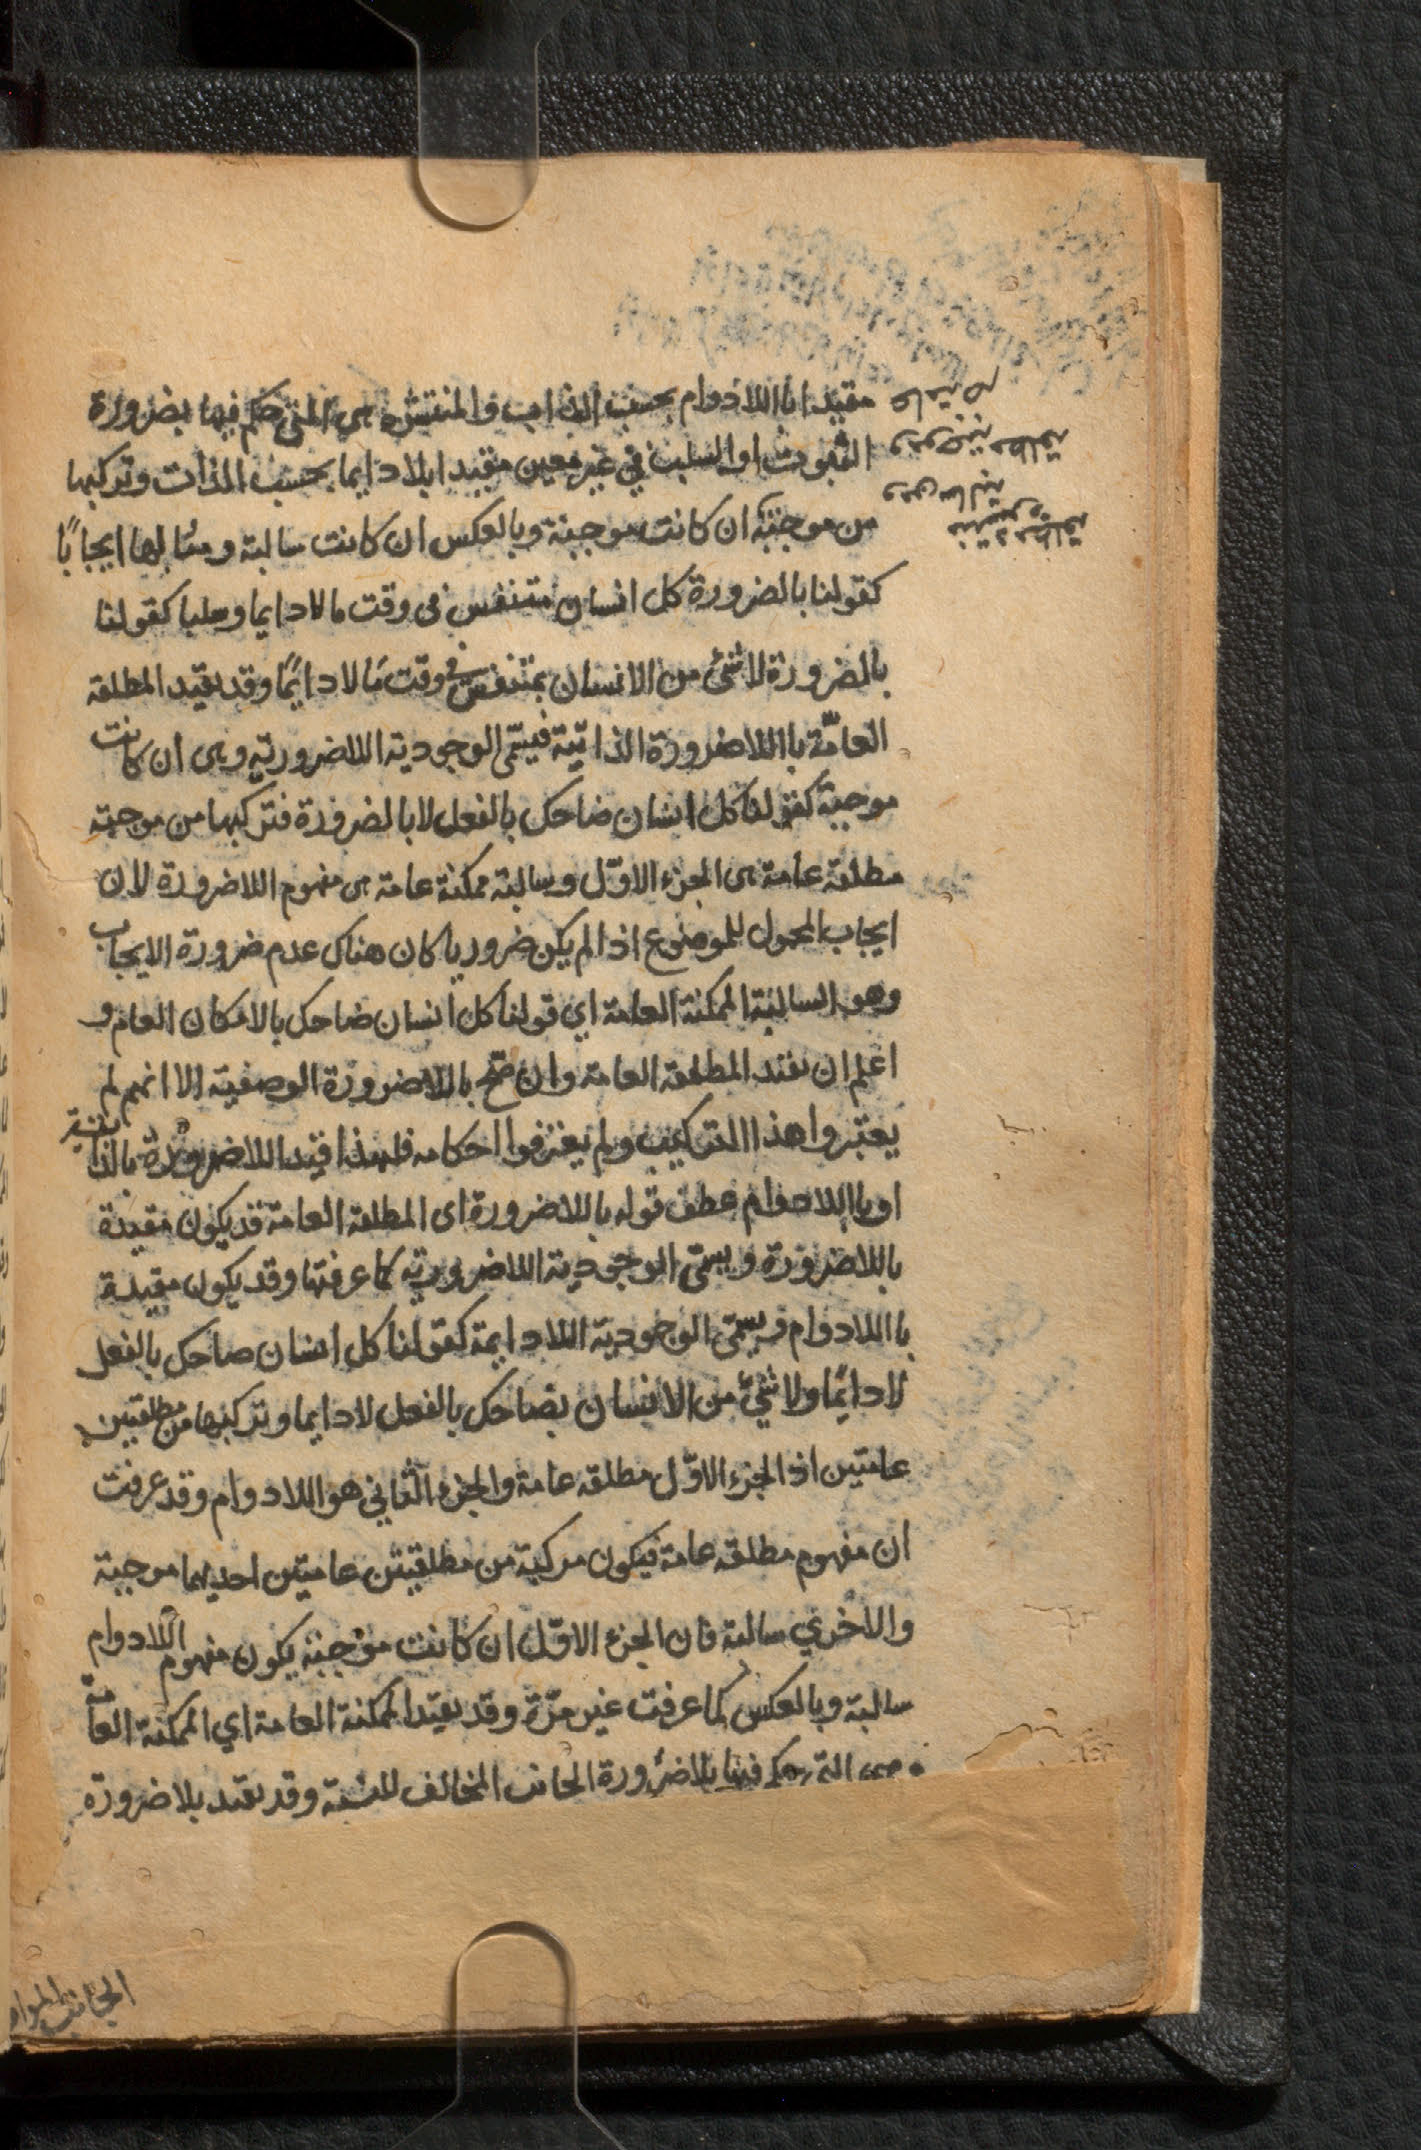 مقيدا باللادوام بحسب الذات والمنتشرة هي التي حكم فيها بضرورة
الثبوت او السلب في غير معين مقيدا بلادايما بحسب الذات وتركبها
من موجبة ان كانت موجبة وبالعكس ان كانت سالبة ومثالها ايجابًا
كقولنا بالضرورة كل انسان متنفس في وقت ما لادايما وسلبا كقولنا
بالضرورة لاشئ من الانسان بمتنفس في وقت مّا لادايمًا وقد يقيد المطلقة
العامّة باللاضرورة الذاتيّة فيسمّى الوجودية اللاضرورية وهى ان كانت
موجبة كقولنا كل انسان ضاحك بالفعل لابالضرورة فتركبها من موجبة
مطلقة عامة هى الجزء الاوّل وسالبة ممكنة عامة هى مفهوم اللاضرورة لان
ايجاب المحمول للموضوع اذا لم يكن ضروريا كان هناك عدم ضرورة الايجاب
وهو السالبة الممكنة العامة اي قولنا كل انسان ضاحك بالامكان العام و
اعلم ان تقيد المطلقة العامة وان صّح باللاضرورة الوصفية الا انهم لم
يعتبروا هذا التركيب ولم يعترفوا احكامه فلهذا قيد اللاضرورة بالذاتية
او باللادوام عطف قوله باللاضرورة اى المطلقة العامة قد يكون مقيدة
باللاضرورة ويسمّى الوجودية اللاضرورية كما عرفتها وقد يكون مقيدة
باللادوام فيسمّى الوجودية اللادايمة كقولنا كل انسان ضاحك بالفعل
لادايمًا ولاشئ من الانسان بضاحك بالفعل لادايما وتركبها من مطلقتين
عامتين اذ الجزء الاوّل مطلقة عامة والجزء الثاني هو اللادوام وقد عرفت
ان مفهوم مطلقه عامة فيكون مركبة من مطلقتين عامتين احديهما موجبة
والاخري سالبة فان الجزء الاوّل ان كانت موجبة يكون مفهوم اللادوام
سالبة وبالعكس كما عرفت غير مرّة وقد يقيّد الممكنة العامة اي الممكنة العامة
وهى التى حكم فيها بلاضرورة الجانب المخالف للنسبة وقد يقيد بلاضرورة
الجانب